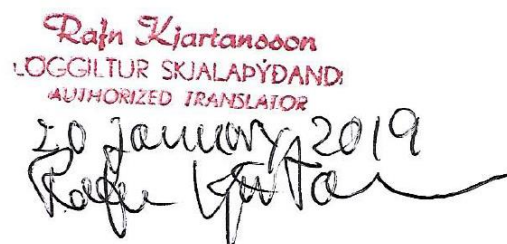 Rafn Kjartansson
LÖGGILTUR SKJALAÞÝÐANDI
AUTHORIZED TRANSLATOR
20 january 2019
Rafn Kjartansson